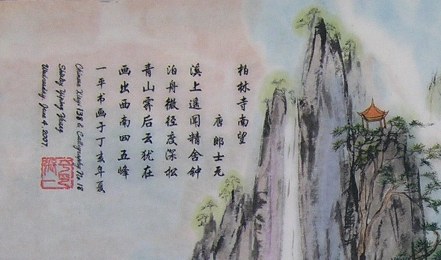 柏林寺南望
唐 郎士元
溪上遥闻精舍钟
泊舟微径度深松
青山霁后云犹在
画出西南四五峰
一平书画于丁亥年夏
Chinese 138 & Calligraphy No 18
Yiping Zhang
Wednesday, June 4, 2007